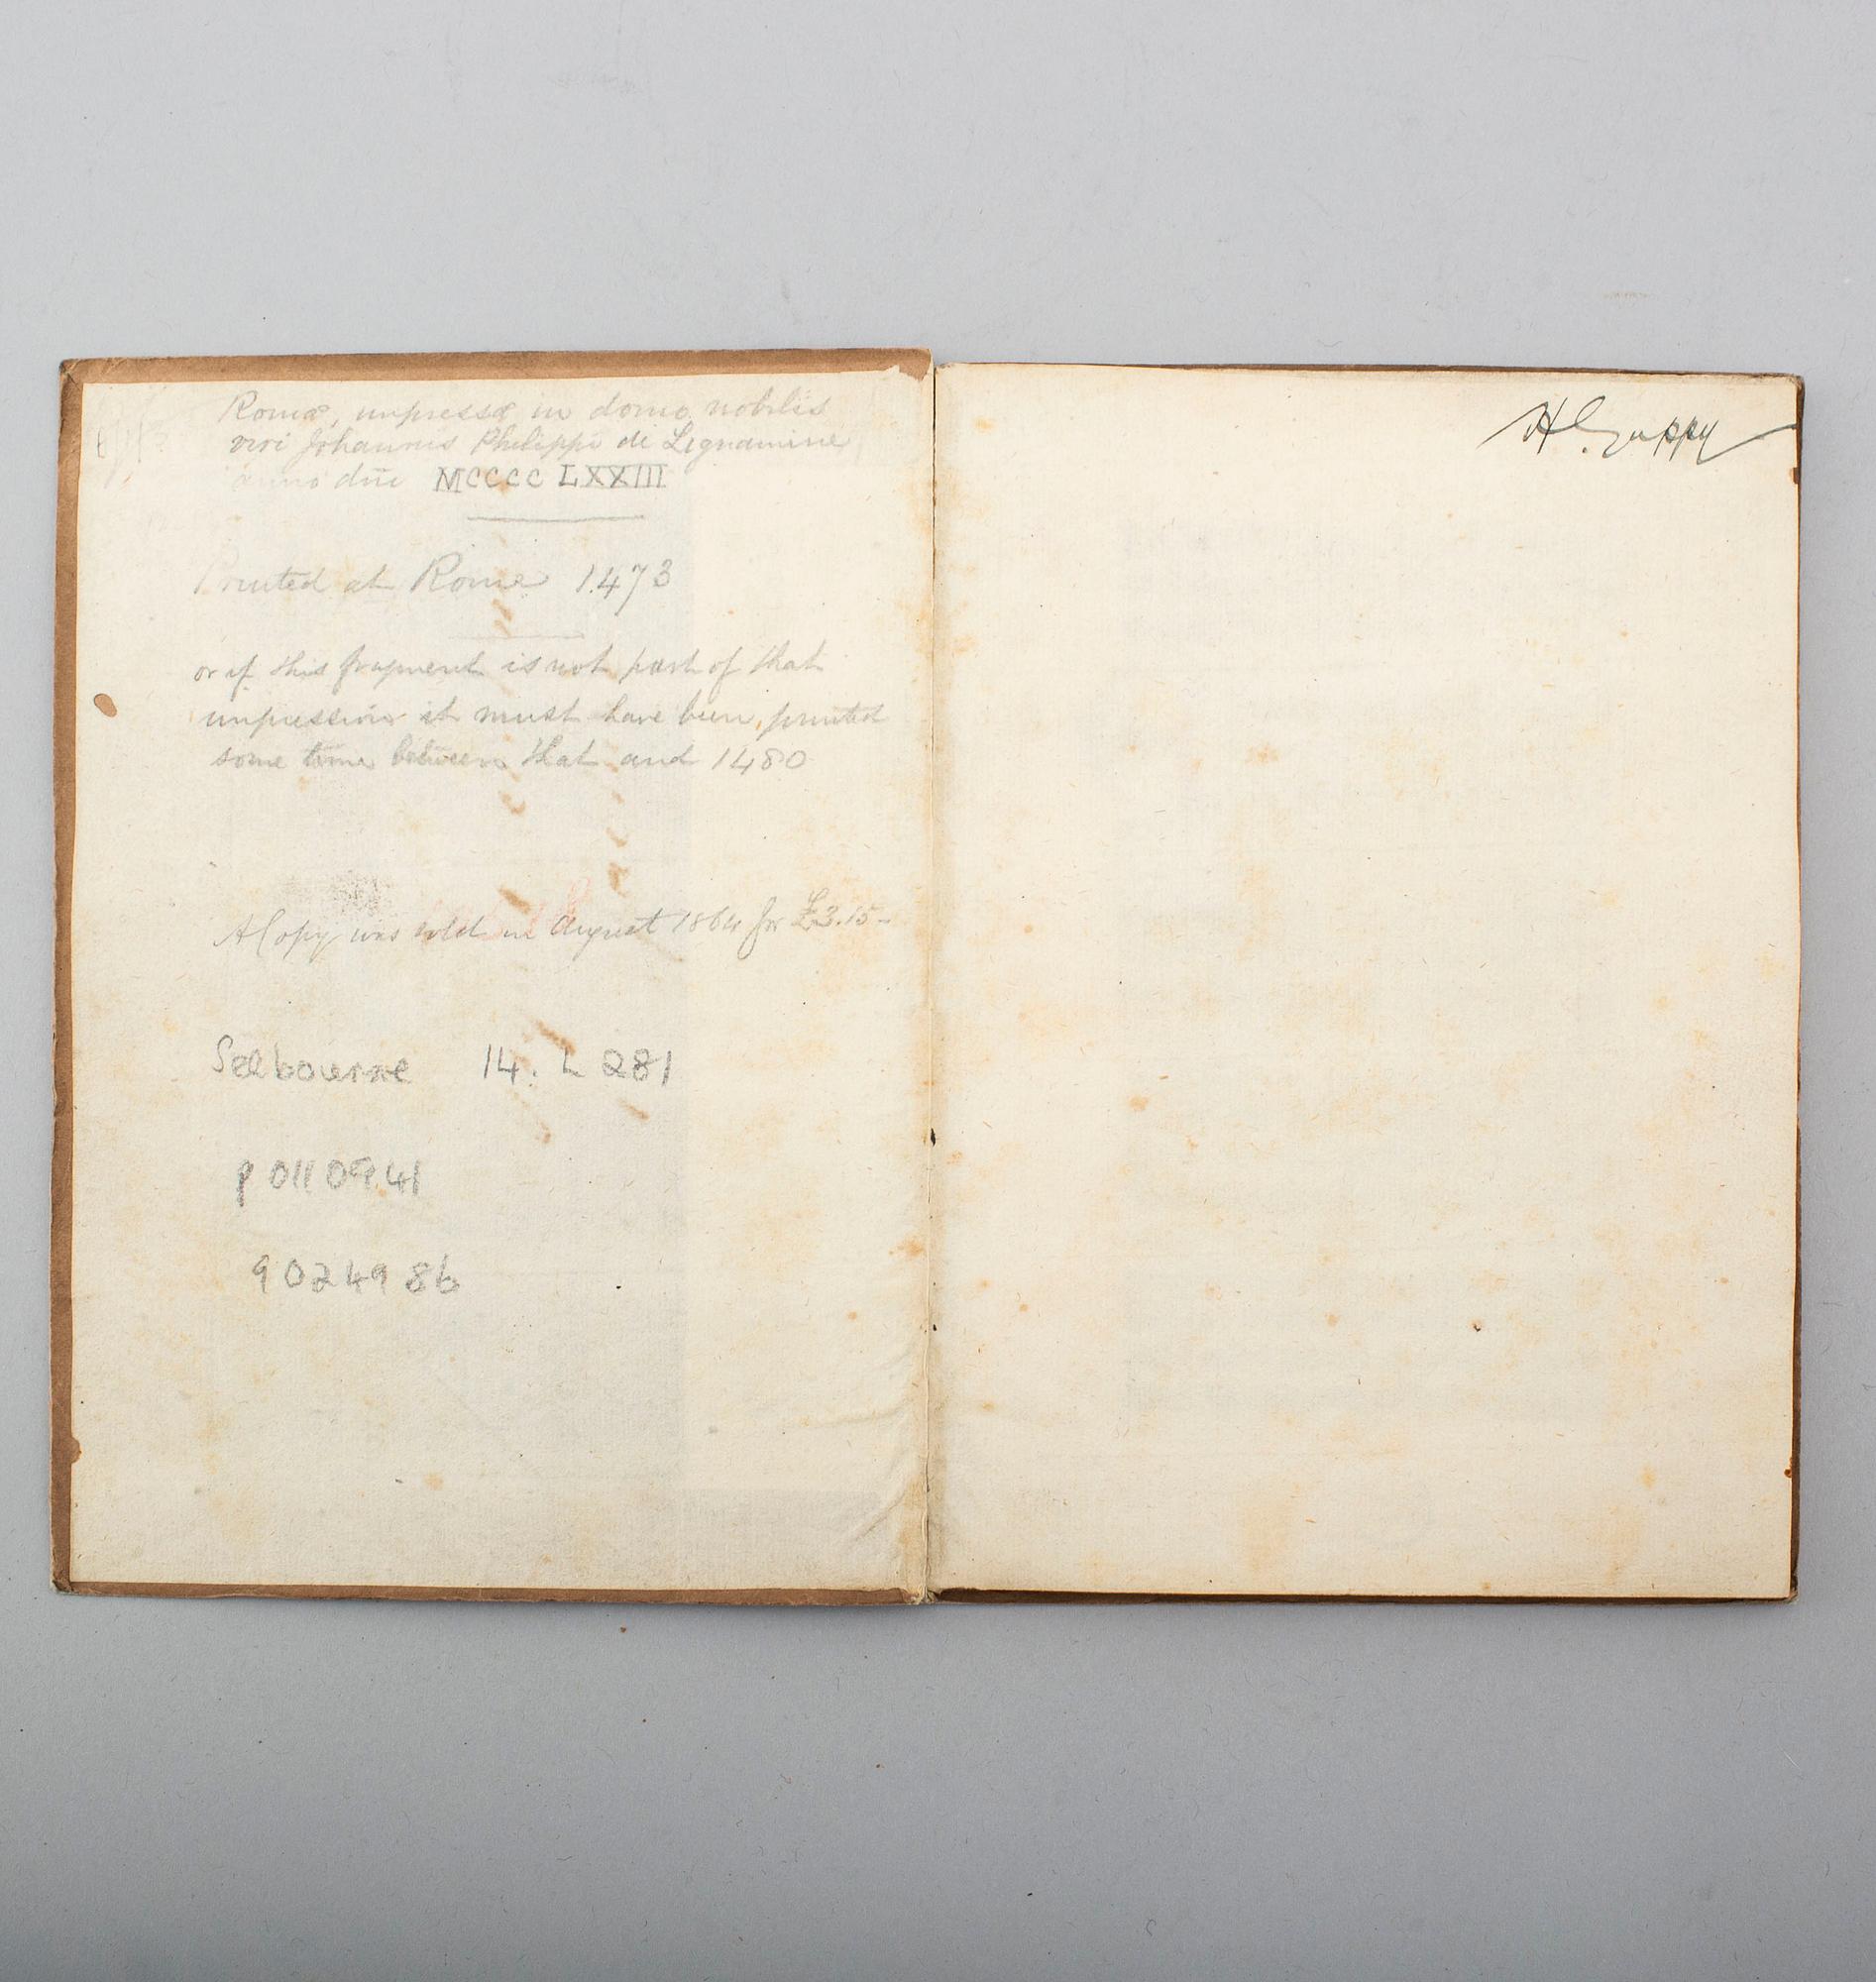 Romæ, impressæ in domo nobilis
viri Johannis Philippi de Lignamine
anno dñi MCCCC LXXIII
Printed at Rome 1473
or if this fragment is not part of that
impression it must have been printed
some time between that and 1480
A Copy was sold in August 1864 for £3.15-
Selbourne 14. L 281
P 0110941
9024986
H Guppy